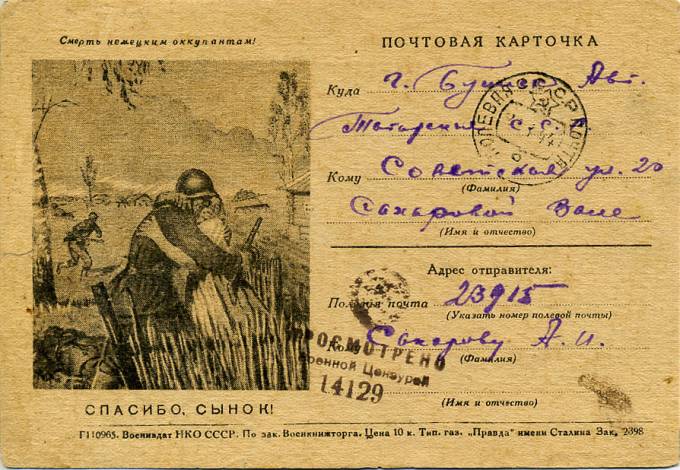 Смерть немецким оккупантам!
ПОЧТОВАЯ КАРТОЧКА
Куда г. Буинск Авт.
Татарская С.С.
Кому Советская ул. 20
(Фамилия)
Сахаровой Вале
(Имя и отчество)
Адрес отправителя:
Полевая почта 23915
(Указать номер полевой почты)
Кому Сахарову А. И.
(Фамилия)
(Имя и отчество)
ПОЛЕВАЯ ПОЧТА СССР
ПРОСМОТРЕНО
Военной Цензурой
14129
СПАСИБО, СЫНОК!
Г110965. Воениздат НКО СССР. По зак. Военкнижторга. Цена 10 к. Тип. газ. „Правда" имени Сталина Зак. 2398